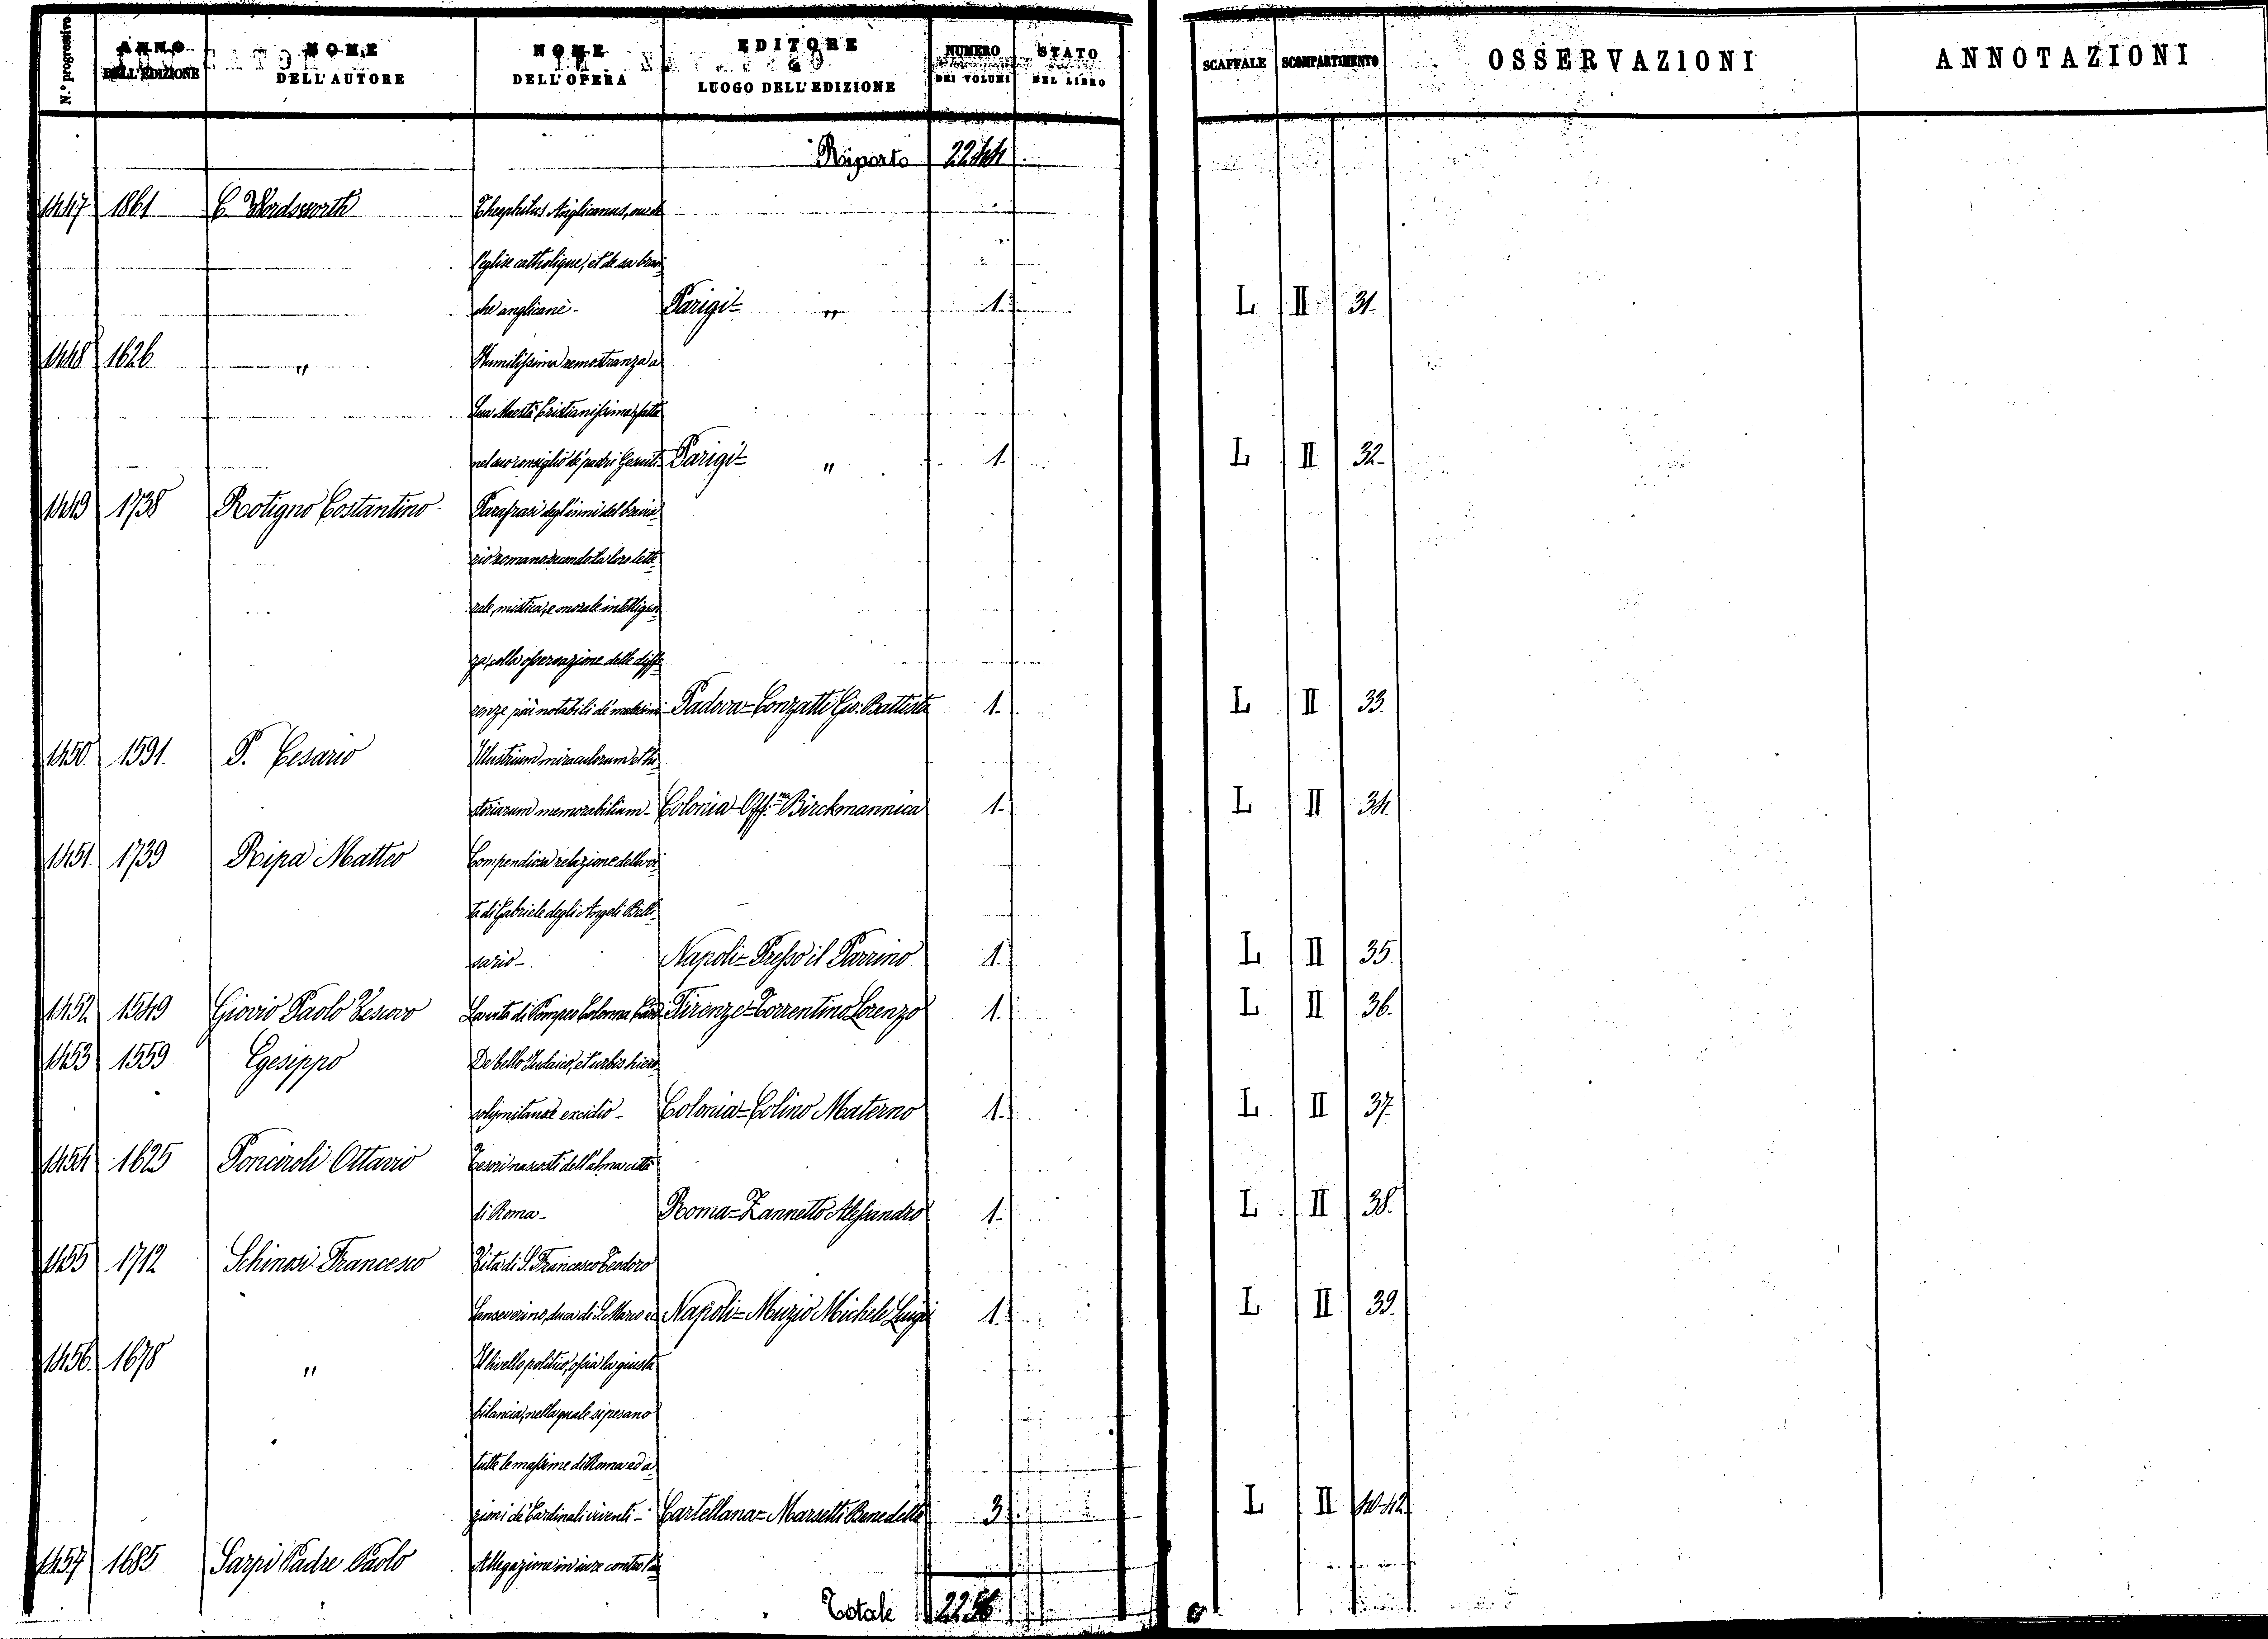 N.º progressivo | ANNO DELL'EDIZIONE | NOME DELL'AUTORE | NOME DELL'OPERA | EDITORE LUOGO DELL'EDIZIONE | NUMERO DEI VOLUMI | STATO DEL LIBRO | SCAFFALE | SCOMPARTIMENTO | OSSERVAZIONI | ANNOTAZIONI
Riporto 2244
1447 1861 C. Wordsworth Theophilus Anglicanus, ou de
l'eglise catholique, et de sa bran
che anglicane - Parigi = " 1. L II 31.
1448 1626 " Humilissima remostranza a
Sua Maestà Cristianissima, fatta
nel suo consiglio de' padri Gesuiti Parigi = " 1. L II 32.
1449 1738 Rotigno Costantino Parafrasi degl'inni del brevia
rio romano secondo la loro lette
rale, mistica, e morale intelligen
za, colla osservazione delle diffe
renze più notabili de' medesimi - Padova = Conzatti Gio. Battista 1. L II 33.
1450 1591. P. Cesario Illustrium miraculorum et hi
storiarum memorabilium - Colonia = Off.na Birckmannica 1. L II 34.
1451. 1739 Ripa Matteo Compendiosa relazione della vi
ta di Gabriele degli Angeli Beli
sario - Napoli = Presso il Parrino 1. L II 35.
1452 1549 Giovio Paolo Vescovo La vita di Pompeo Colonna Card. Firenze = Torrentino Lorenzo 1. L II 36.
1453 1559 Egesippo De bello Judaico, et urbis hiero
solymitanae excidio - Colonia = Colino Materno 1. L II 37.
1454 1625 Panciroli Ottavio Tesori nascosti dell'alma città
di Roma - Roma = Zannetto Alessandro 1. L II 38.
1455 1712 Schinosi Francesco Vita di S. Francesco Teodoro
Sanseverino, duca di S. Marco ec Napoli = Muzio Michele Luigi 1. L II 39.
1456. 1678 " Il livello politico, ossia la giusta
bilancia, nella quale si pesano
tutte le massime di Roma ed a
zioni de' Cardinali viventi - Cartellana = Marsetti Benedetto 3 L II 40-42
1457 1685 Sarpi Padre Paolo Allegazione in iure contro l'
Totale 2256